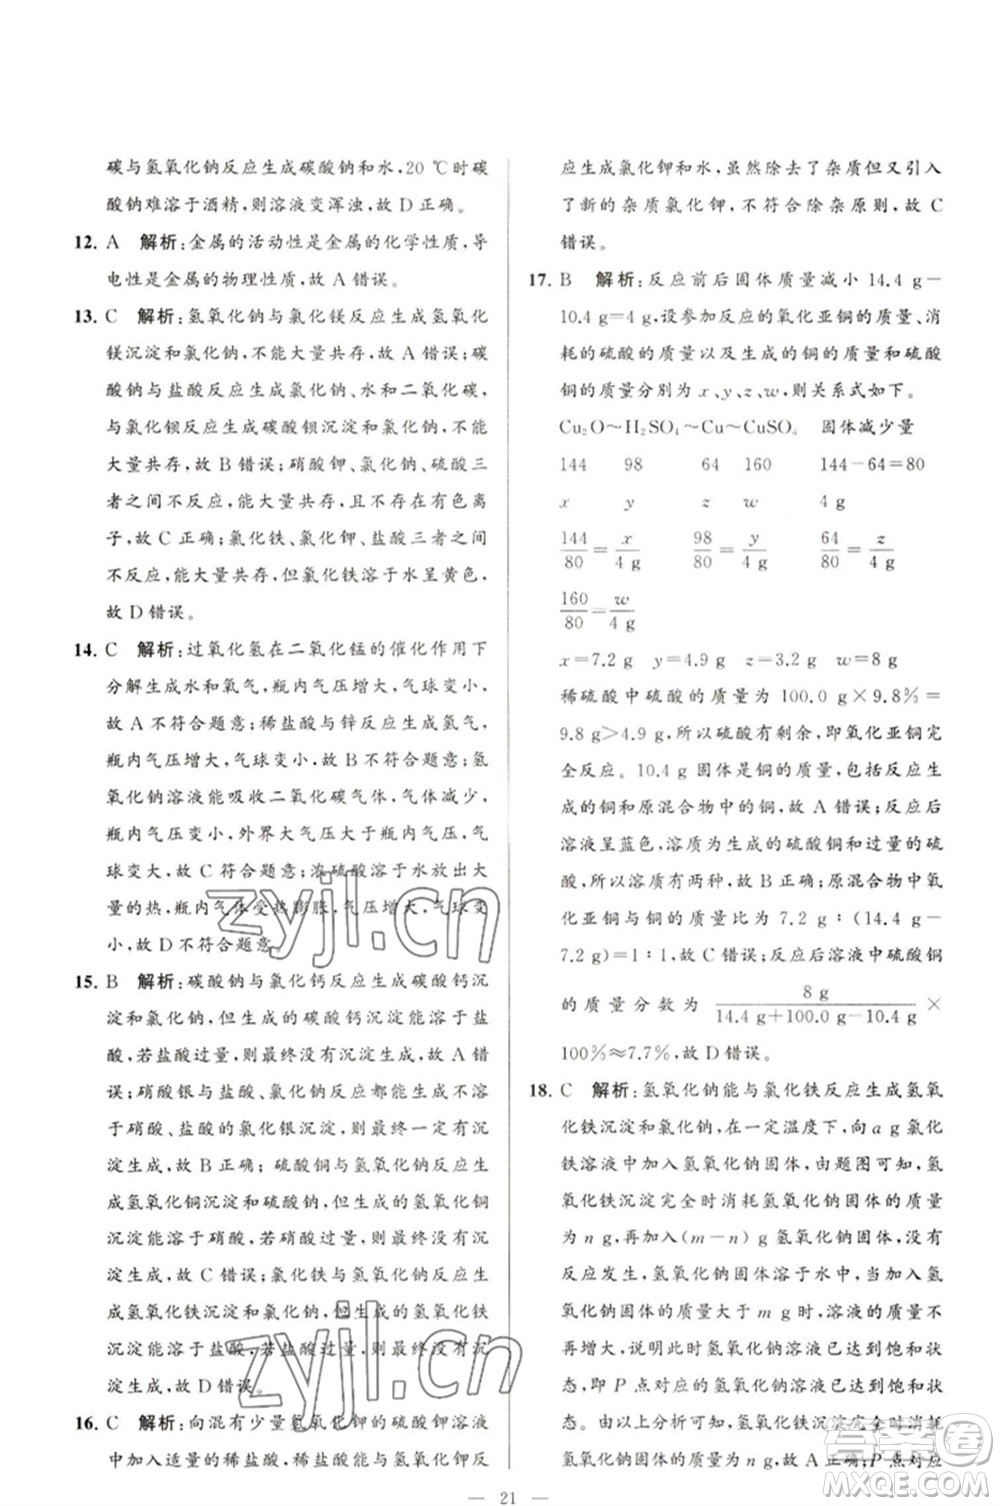 碳与氢氧化钠反应生成碳酸钠和水,20 ℃时碳
酸钠难溶于酒精,则溶液变浑浊,故 D 正确。
12. A 解析:金属的活动性是金属的化学性质,导
电性是金属的物理性质,故 A 错误。
13. C 解析:氢氧化钠与氯化镁反应生成氢氧化
镁沉淀和氯化钠,不能大量共存,故 A 错误;碳
酸钠与盐酸反应生成氯化钠、水和二氧化碳,
与氯化钡反应生成碳酸钡沉淀和氯化钠,不能
大量共存,故 B 错误;硝酸钾、氯化钠、硫酸三
者之间不反应,能大量共存,且不存在有色离
子,故 C 正确;氯化铁、氯化钾、盐酸三者之间
不反应,能大量共存,但氯化铁溶于水呈黄色,
故 D 错误。
14. C 解析:过氧化氢在二氧化锰的催化作用下
分解生成水和氧气,瓶内气压增大,气球变小,
故 A 不符合题意;稀盐酸与锌反应生成氢气,
瓶内气压增大,气球变小,故 B 不符合题意;氢
氧化钠溶液能吸收二氧化碳气体,气体减少,
瓶内气压变小,外界大气压大于瓶内气压,气
球变大,故 C 符合题意;浓硫酸溶于水放出大
量的热,瓶内气体受热膨胀,气压变大,气球变
小,故 D 不符合题意。
15. B 解析:碳酸钠与氯化钙反应生成碳酸钙沉
淀和氯化钠,但生成的碳酸钙沉淀能溶于盐
酸,若盐酸过量,则最终没有沉淀生成,故 A 错
误;硝酸银与盐酸、氯化钠反应生成既不溶
于硝酸、盐酸的氯化银沉淀,最终一定有沉淀
生成,故 B 正确;硫酸铜与氢氧化钠反应生
成氢氧化铜沉淀和硫酸钠,但生成的氢氧化铜
沉淀能溶于硝酸,若硝酸过量,则最终没有沉
淀生成,故 C 错误;氯化铁与氢氧化钠反应生
成氢氧化铁沉淀和氯化钠,但生成的氢氧化铁
沉淀能溶于盐酸,若盐酸过量,则最终没有沉
淀生成,故 D 错误。
16. C 解析:向混有少量氢氧化钾的硫酸钾溶液
中加入适量的稀盐酸,稀盐酸与氢氧化钾反
应生成氯化钾和水,虽然除去了杂质但又引入
了新的杂质氯化钾,不符合除杂原则,故 C
错误。
17. B 解析:反应前后固体质量减小 14.4 g−
10.4 g=4 g,设参加反应的氧化亚铜的质量、消
耗的硫酸的质量以及生成的铜的质量和硫酸
铜的质量分别为 x、y、z、w,则关系式如下。
Cu₂O～H₂SO₄～Cu～CuSO₄ 固体减少量
144 98 64 160 144−64=80
x y z w 4 g
144/80=x/4 g 98/80=y/4 g 64/80=z/4 g
160/80=w/4 g
x=7.2 g y=4.9 g z=3.2 g w=8 g
稀硫酸中硫酸的质量为 100.0 g×9.8%=
9.8 g>4.9 g,所以硫酸有剩余,即氧化亚铜完
全反应。10.4 g 固体是铜的质量,包括反应生
成的铜和原混合物中的铜,故 A 错误;反应后
溶液呈蓝色,溶质为生成的硫酸铜和剩余的硫
酸,所以溶质有两种,故 B 正确;原混合物中氧
化亚铜与铜的质量比为 7.2 g∶(14.4 g−
7.2 g)=1∶1,故 C 错误;反应后溶液中硫酸铜
的质量分数为 8 g/(14.4 g+100.0 g−10.4 g)×
100%≈7.7%,故 D 错误。
18. C 解析:氢氧化钠能与氯化铁反应生成氢氧
化铁沉淀和氯化钠,在一定温度下,向 a g 氯化
铁溶液中加入氢氧化钠固体,由题图可知,氢
氧化铁沉淀完全时消耗氢氧化钠固体的质量
为 n g,再加入(m−n) g 氢氧化钠固体,没有
反应发生,氢氧化钠固体溶于水中,当加入氢
氧化钠固体的质量大于 m g时,溶液的质量不
再增大,说明此时氢氧化钠溶液已达到饱和状
态,即 P 点对应的氢氧化钠溶液为饱和状
态。由以上分析可知,氢氧化铁沉淀完全消耗
氢氧化钠固体的质量为 n g,故 A 正确;P 点对应
— 21 —
zyjl.cn
zyjl.cn
答案圈
MXQE.COM